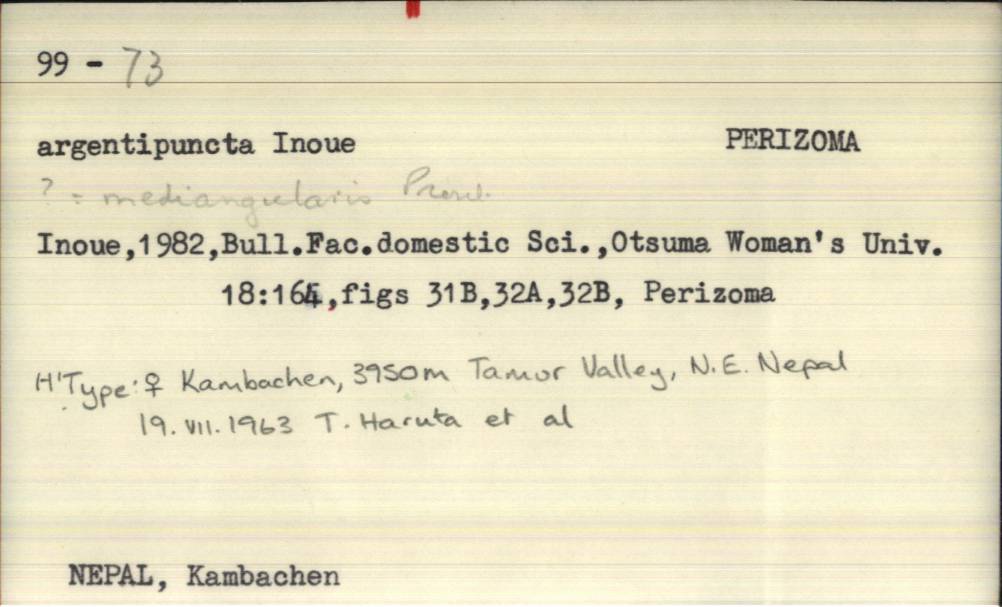 99 - 73
argentipuncta Inoue PERIZOMA
? = mediangularis Prout.
Inoue,1982,Bull.Fac.domestic Sci.,Otsuma Woman's Univ.
18:164,figs 31B,32A,32B, Perizoma
H'Type: ♀ Kambachen, 3950m Tamur Valley, N.E. Nepal
19.VII.1963 T. Haruta et al
NEPAL, Kambachen